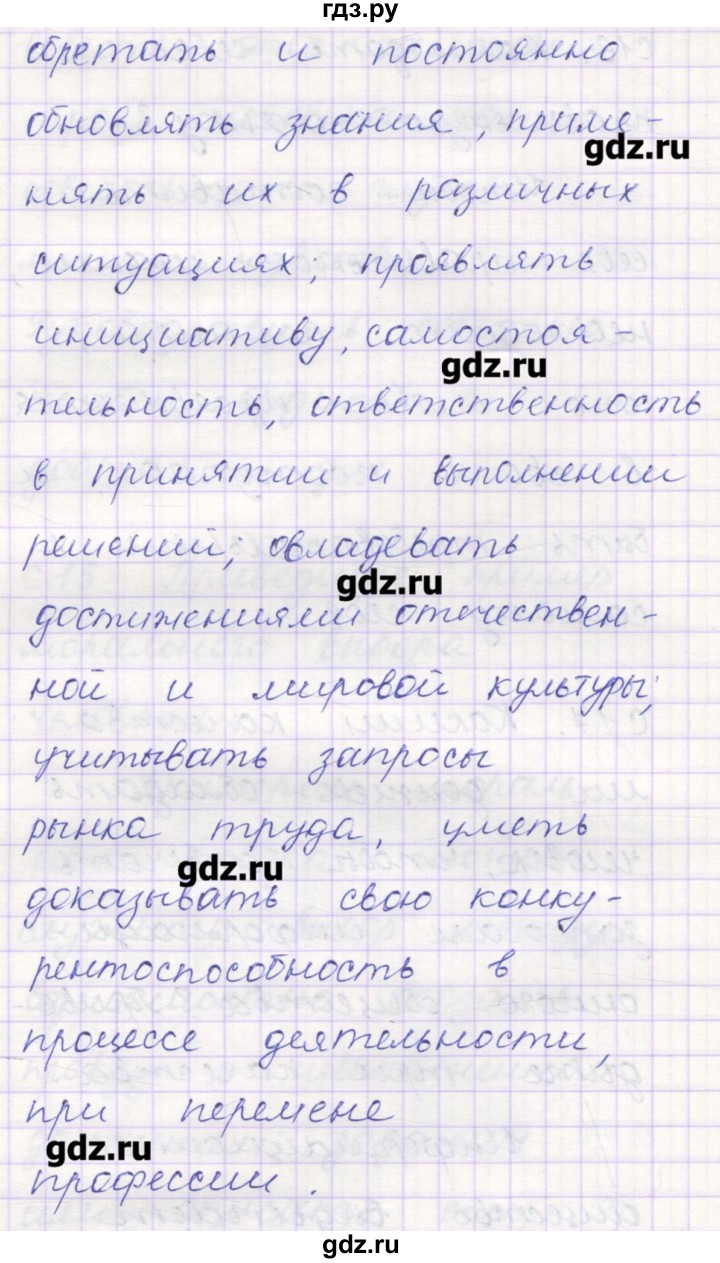 гдз.ру
обретать и постоянно
обновлять знания, приме-
gdz.ru
нять их в различных
ситуациях; проявлять
инициативу, самостоя-
gdz.ru
тельность, ответственность
в принятии и выполнении
решений; овладевать
gdz.ru
достижениями отечествен-
ной и мировой культуры;
учитывать запросы
рынка труда, уметь
gdz.ru
доказывать свою конку-
рентоспособность в
процессе деятельности,
при перемене
gdz.ru
профессии.
gdz.ru